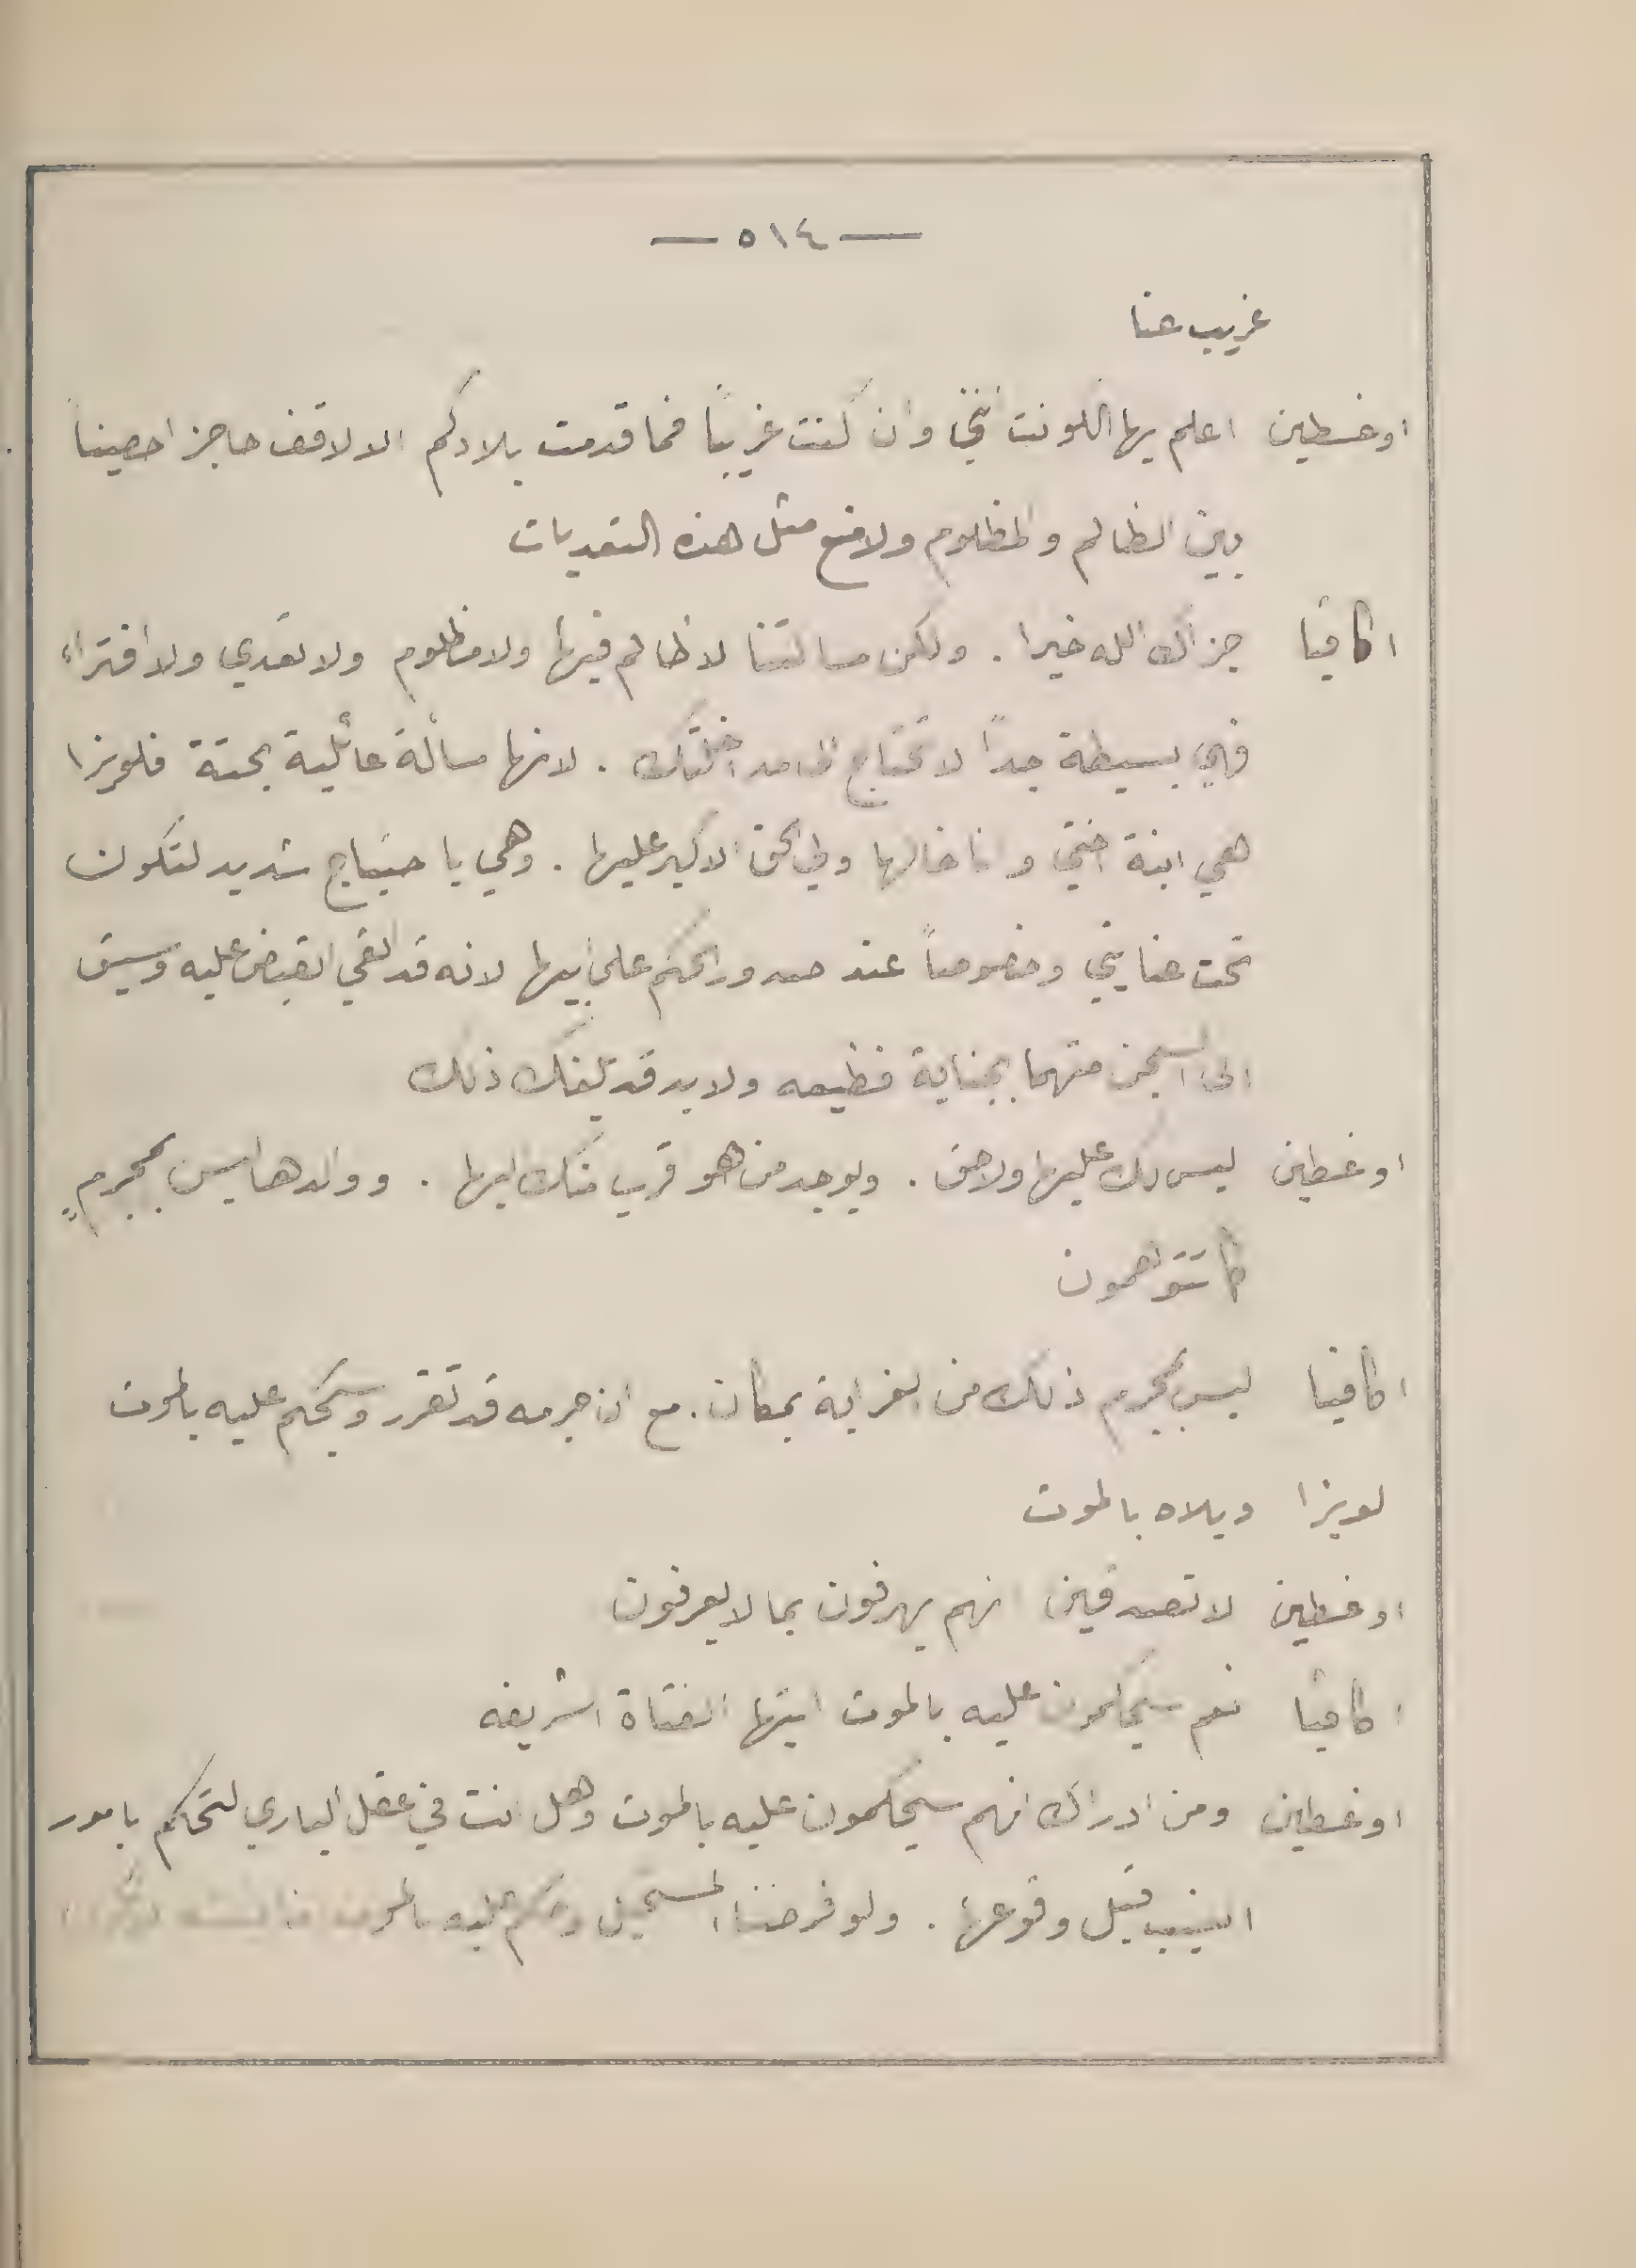 — ٥١٤ —
غريب عنا
اوغسطين اعلم يها اللونت انني وان كنت غريبًا فما قدمت بلادكم الا لاقف حاجز احصيناً
بين الظالم والمظلوم ولامنع مثل هذه التعديات
اكافيا جزاك الله خيرا . ولكن مسالتنا لا ظالم فيها ولا مظلوم ولا تعدي ولا افتراء
فهي بسيطة جداً لا تحتاج الى مداخلتك . لانها مسألة عائلية بحتة فلويزا
هي ابنة اختي وانا خالها ولي الحق الاكبر عليها . وهي با حتياج شديد لتكون
تحت عنايتي وخصوصاً عند صدور الحكم على ابيها لانه قد القي القبض عليه وسيق
الى السجن متهما بجناية فظيعه ولا بد قد بلغك ذلك
اوغسطين ليس لك عليها ولا حق . ويوجد من هو قرب منك اليها . ووالدها ليس بمجرمٍ
كما تتوهمون
اكافيا ليس بمجرم ذلك من الغرابة بمكان . مع ان جرمه قد تقرر وسيحكم عليه بالموت
لويزا ويلاه بالموت
اوغسطين لا تصدقين انهم يهرفون بما لا يعرفون
اكافيا نعم سيحاكمون عليه بالموت ايتها الفتاة الشريفه
اوغسطين ومن ادراك انهم سيحكمون عليه بالموت وهل انت في عقل الباري لتحكم بامور
الغيب قبل وقوعها . ولو فرضنا المستحيل وحكم عليه بالموت